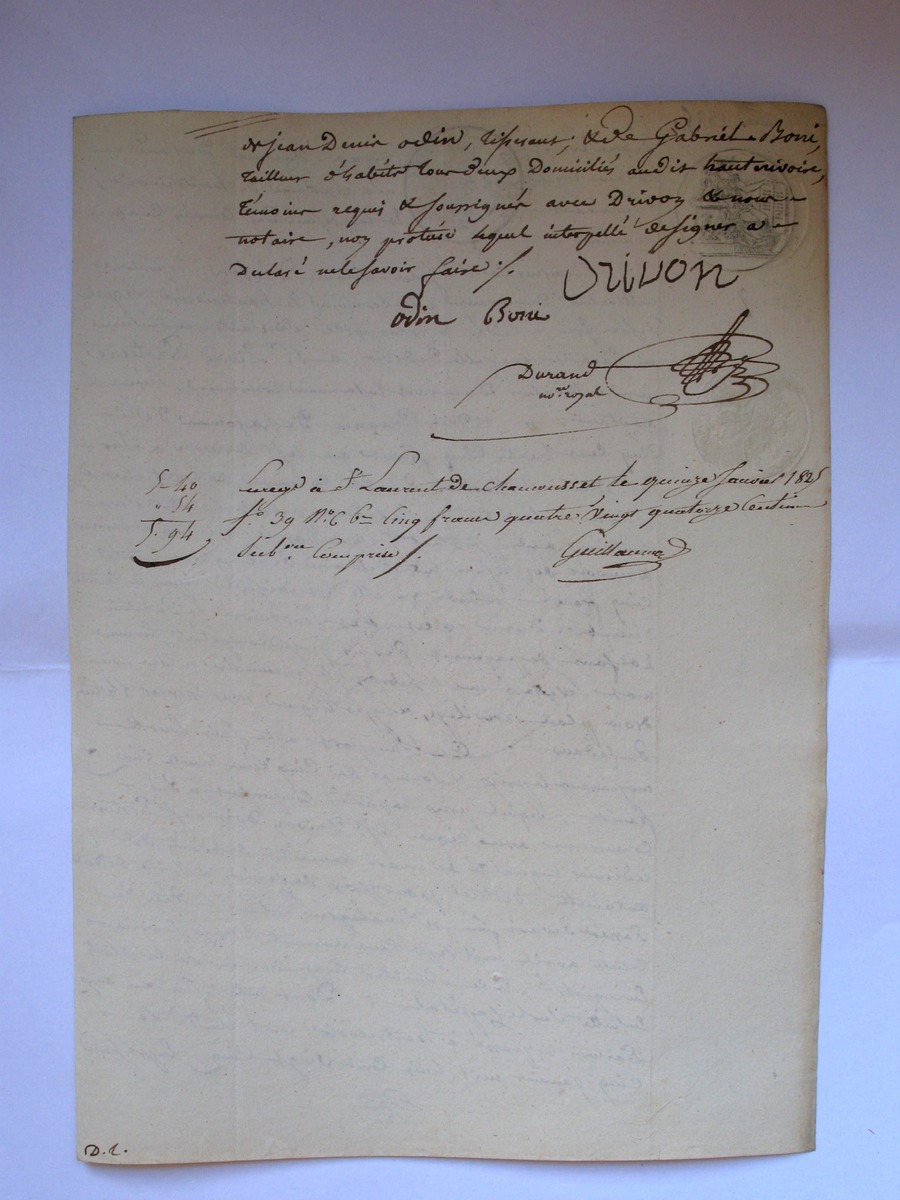 de jean Denis odin, tisserant, & de Gabriel Boni,
tailleur d'habits tous deux Domiciliés audit hauterivoire,
témoins requis & soussignés avec Drivon & nous
notaire, non protase lequel interpellé de signer a
Declaré ne le savoir faire ./.
Drivon
odin Boni
Durand
no.re royal
5-40
" 54
5. 94
Enregé à St Laurent de Chamousset le quinze Janvier 1825
f.o 39 N.o C 6 Cinq francs quatre vingt quatorze Centimes
Subon Comprise ./.
Guillaume
D. L.